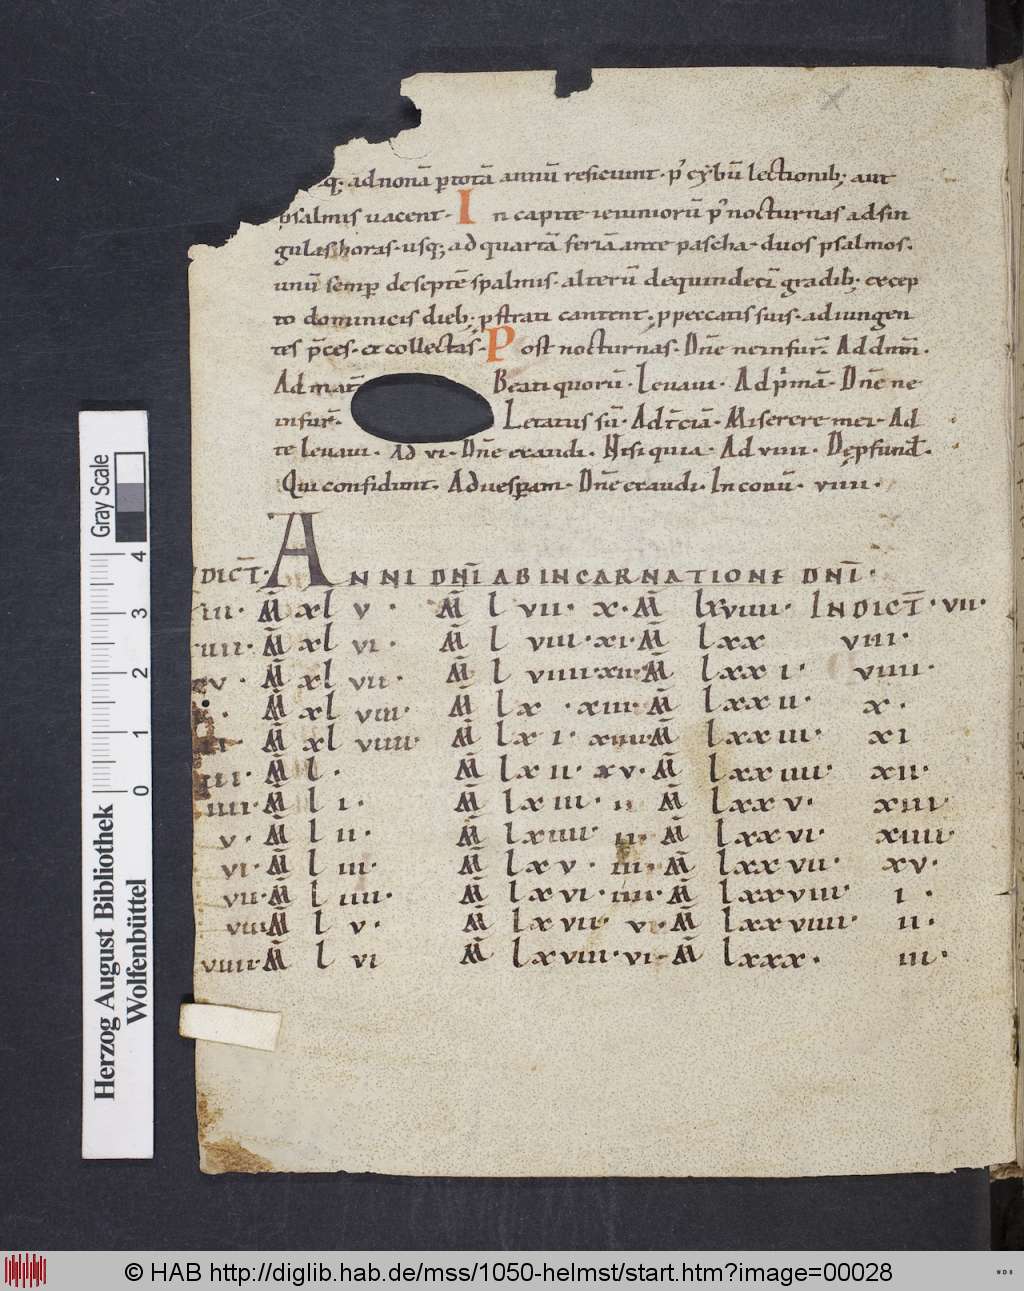 q; ad nonā ꝑ totā annū reficiunt · p' cybū lectionib; aut
psalmis uacent · In capite ieiuniorū p' nocturnas ad sin
gulas horas · usq; ad quartā feriā ante pascha · duos psalmos ·
unū semp̄ de septē spalmis · alterū de quindecī gradib; excep
to dominicis dieb; ꝓstrati cantent · ꝓ peccatis suis · adiungen
tes p̄ces · et collectas · Post nocturnas · Dn̄e ne infur̄ · Ad
Ad mat̄ Beati quorū · Leuaui · Ad p'mā · Dn̄e ne
infur̄ · Letatus sū · Ad t̄ciā · Miserere mei · Ad
te leuaui · Ad vi · Dn̄e exaudi · Nisi quia · Ad viiii · De ꝓfund̄ ·
Qui confidunt · Ad uesꝑam · Dn̄e exaudi · In conu̅ · viiii ·
DICT̄ · ANNI DNĪ AB INCARNATIONE DNĪ ·
M̄ xl v · M̄ l vii · x · M̄ lxviiii · INDICT̄ · vii ·
M̄ xl vi · M̄ l viii · xi · M̄ lxx viii ·
M̄ xl vii · M̄ l viiii · xii · M̄ lxx i · viiii ·
M̄ xl viii · M̄ lx · xiii · M̄ lxx ii · x ·
M̄ xl viiii · M̄ lx i · xiiii · M̄ lxx iii · xi
iii · M̄ l · M̄ lx ii · xv · M̄ lxx iiii · xii ·
iiii · M̄ l i · M̄ lx iii · M̄ lxx v · xiii ·
v · M̄ l ii · M̄ lx iiii · ii · M̄ lxx vi · xiiii ·
vi · M̄ l iii · M̄ lx v · iii · M̄ lxx vii · xv ·
vii · M̄ l iiii · M̄ lx vi · iiii · M̄ lxx viii · i ·
viii M̄ l v · M̄ lx vii · v · M̄ lxx viiii · ii ·
viiii · M̄ l vi M̄ lx viii · vi · M̄ lxxx · iii ·
Gray Scale
0 1 2 3 4
Herzog August Bibliothek
Wolfenbüttel
© HAB http://diglib.hab.de/mss/1050-helmst/start.htm?image=00028